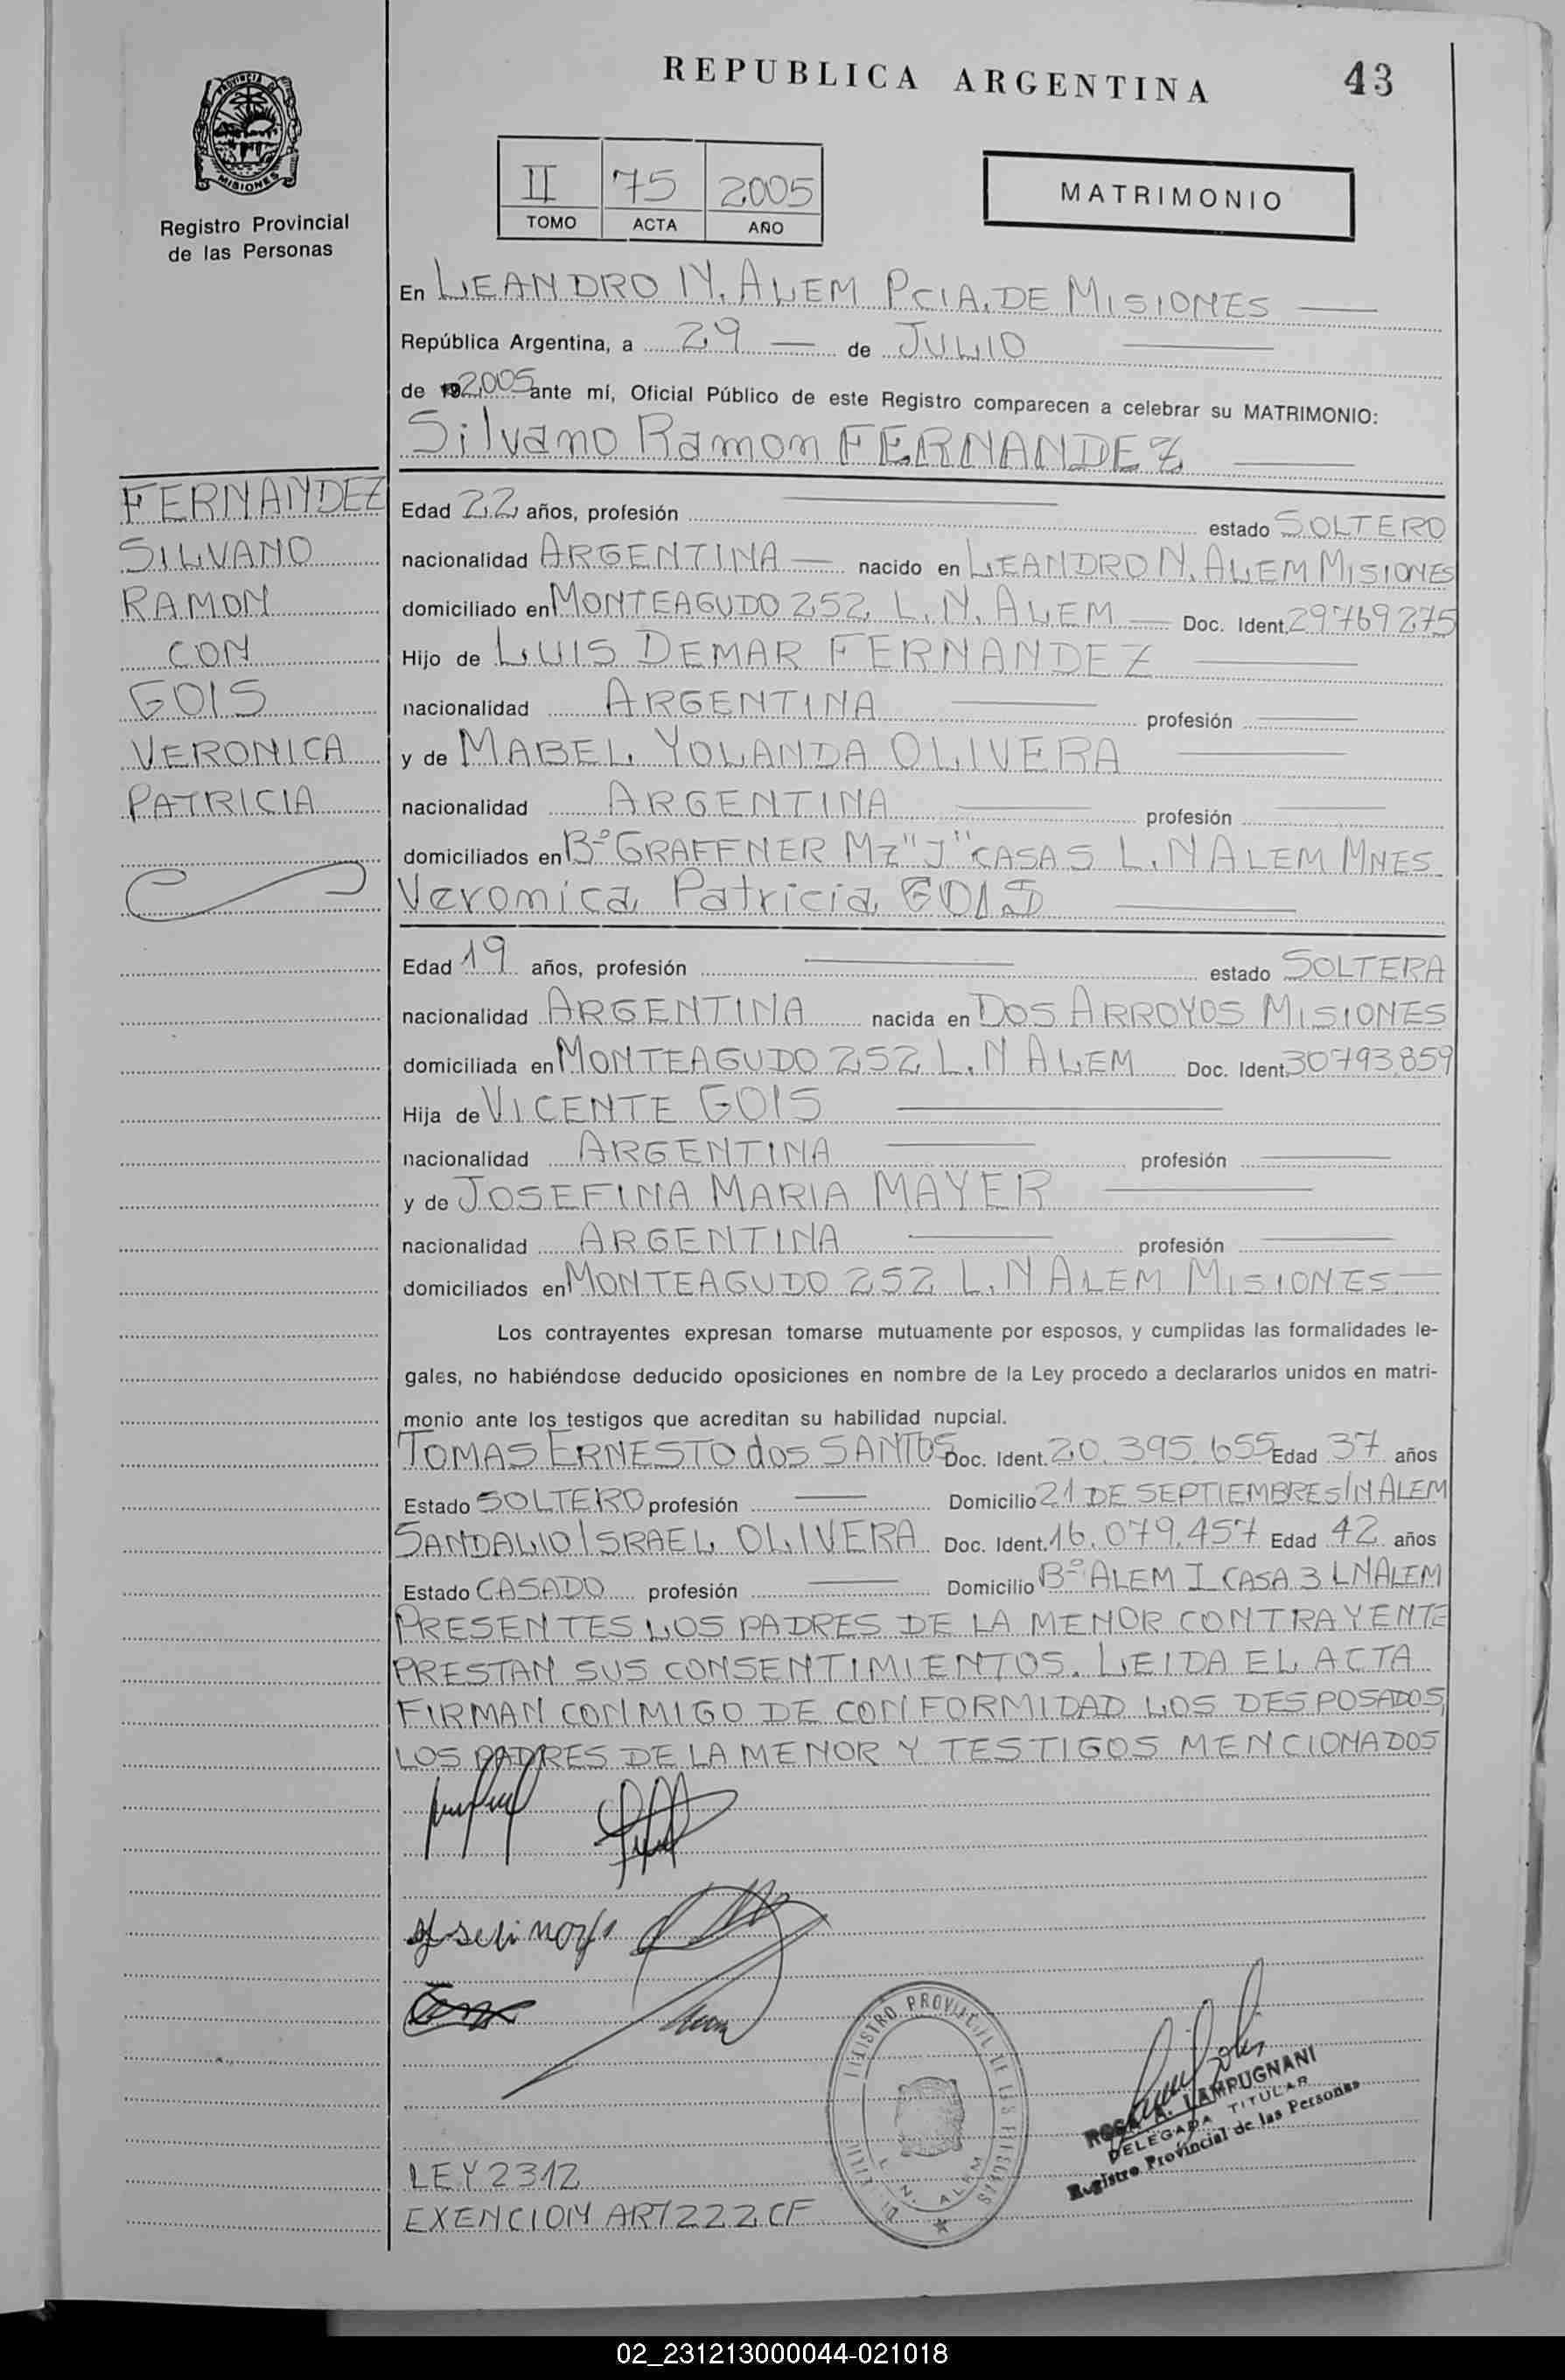 REPUBLICA ARGENTINA
43
PROVINCIA DE
MISIONES
Registro Provincial
de las Personas
II 75 2005
TOMO ACTA AÑO
MATRIMONIO
En LEANDRO N. ALEM PCIA. DE MISIONES
República Argentina, a 29 de JULIO
de 192005 ante mí, Oficial Público de este Registro comparecen a celebrar su MATRIMONIO:
Silvano Ramon FERNANDEZ
FERNANDEZ
SILVANO
RAMON
CON
GOIS
VERONICA
PATRICIA
Edad 22 años, profesión estado SOLTERO
nacionalidad ARGENTINA nacido en LEANDRO N. ALEM MISIONES
domiciliado en MONTEAGUDO 252 L.N. ALEM Doc. Ident. 29769275
Hijo de LUIS DEMAR FERNANDEZ
nacionalidad ARGENTINA profesión
y de MABEL YOLANDA OLIVERA
nacionalidad ARGENTINA profesión
domiciliados en Bº GRAFFNER Mz "J" CASA 5 L.N ALEM MNES
Veronica Patricia GOIS
Edad 19 años, profesión estado SOLTERA
nacionalidad ARGENTINA nacida en DOS ARROYOS MISIONES
domiciliada en MONTEAGUDO 252 L.N ALEM Doc. Ident. 30793859
Hija de VICENTE GOIS
nacionalidad ARGENTINA profesión
y de JOSEFINA MARIA MAYER
nacionalidad ARGENTINA profesión
domiciliados en MONTEAGUDO 252 L.N ALEM MISIONES
Los contrayentes expresan tomarse mutuamente por esposos, y cumplidas las formalidades le-
gales, no habiéndose deducido oposiciones en nombre de la Ley procedo a declararlos unidos en matri-
monio ante los testigos que acreditan su habilidad nupcial.
TOMAS ERNESTO dos SANTOS Doc. Ident. 20.395.655 Edad 37 años
Estado SOLTERO profesión Domicilio 21 DE SEPTIEMBRE S/N ALEM
SANDALIO ISRAEL OLIVERA Doc. Ident. 16.079.457 Edad 42 años
Estado CASADO profesión Domicilio Bº ALEM I CASA 3 LNALEM
PRESENTES LOS PADRES DE LA MENOR CONTRAYENTE
PRESTAN SUS CONSENTIMIENTOS. LEIDA EL ACTA
FIRMAN CONMIGO DE CONFORMIDAD LOS DESPOSADOS,
LOS PADRES DE LA MENOR Y TESTIGOS MENCIONADOS
REGISTRO PROVINCIAL DE LAS PERSONAS
L. N. ALEM
ROSA A. LAMPUGNANI
DELEGADA TITULAR
Registro Provincial de las Personas
LEY 2312
EXENCION ART 222 CF
02_231213000044-021018